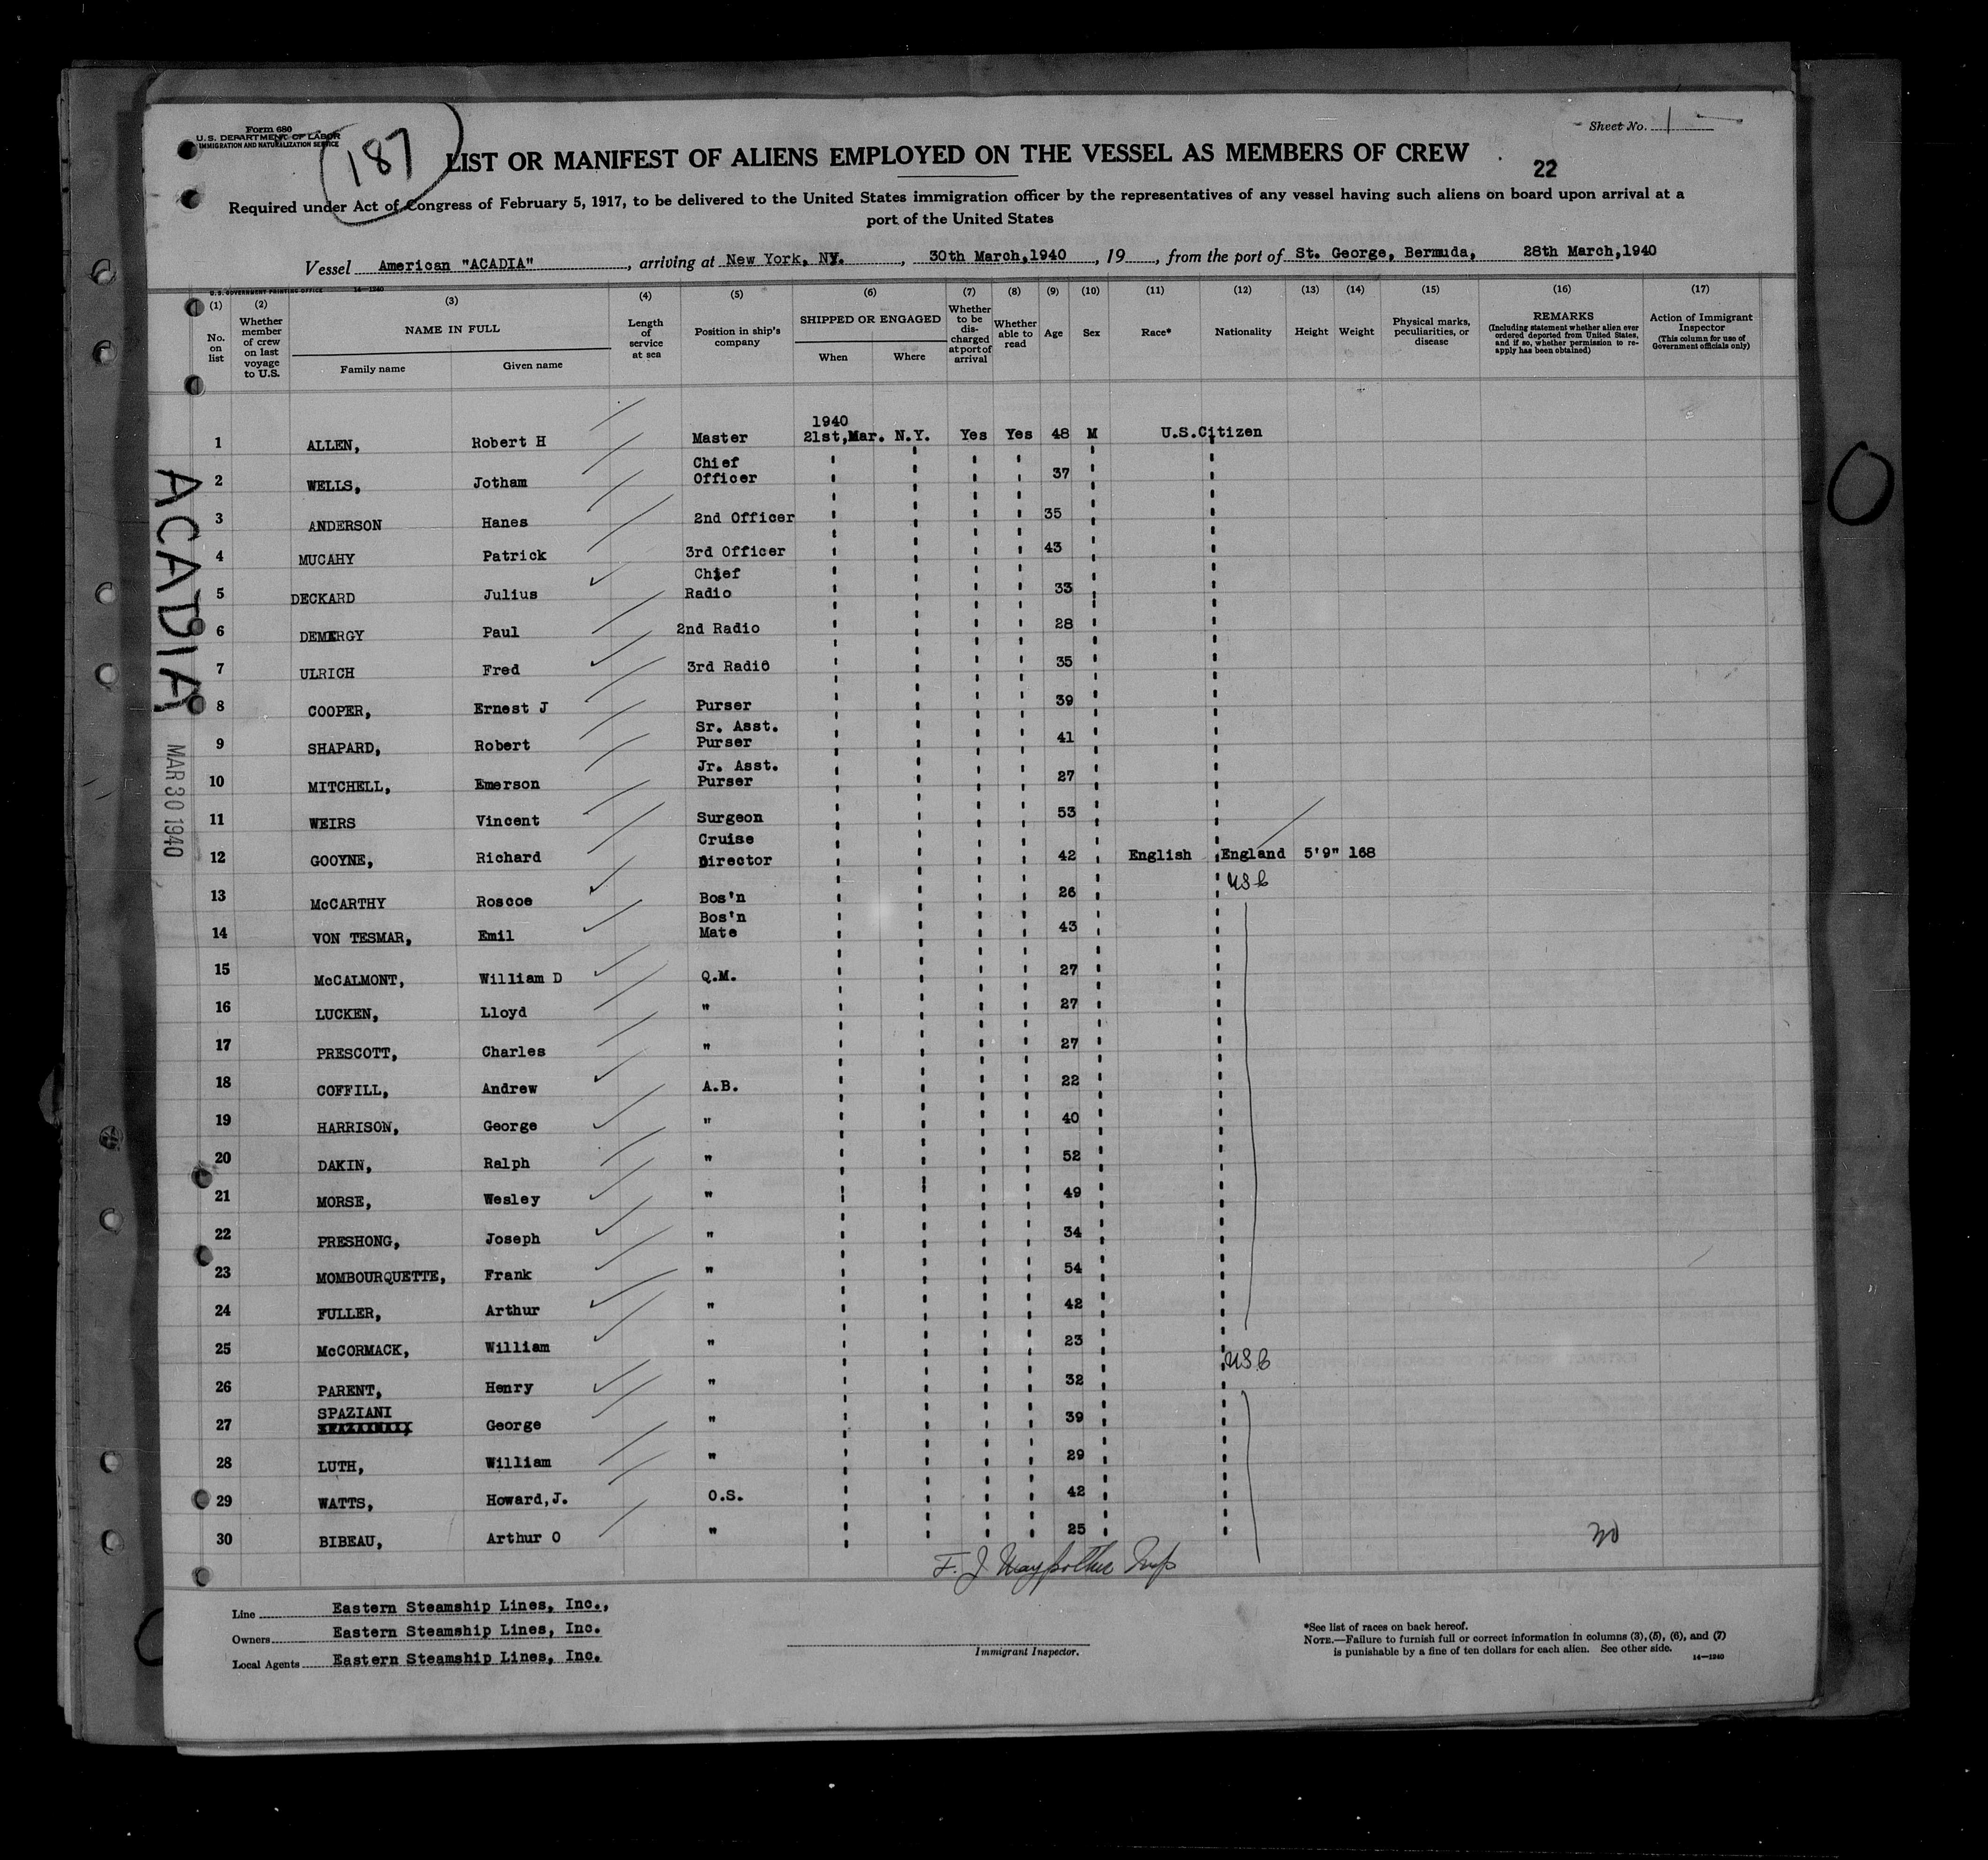 Form 680
U. S. DEPARTMENT OF LABOR
IMMIGRATION AND NATURALIZATION SERVICE
187
Sheet No. 1
LIST OR MANIFEST OF ALIENS EMPLOYED ON THE VESSEL AS MEMBERS OF CREW
22
Required under Act of Congress of February 5, 1917, to be delivered to the United States immigration officer by the representatives of any vessel having such aliens on board upon arrival at a
port of the United States
Vessel American "ACADIA", arriving at New York, NY., 30th March,1940, 19, from the port of St. George, Bermuda, 28th March,1940
U.S. GOVERNMENT PRINTING OFFICE 14—1240
(1) No. on list
(2) Whether member of crew on last voyage to U.S.
(3) NAME IN FULL Family name Given name
(4) Length of service at sea
(5) Position in ship's company
(6) SHIPPED OR ENGAGED When Where
(7) Whether to be discharged at port of arrival
(8) Whether able to read
(9) Age
(10) Sex
(11) Race*
(12) Nationality
(13) Height
(14) Weight
(15) Physical marks, peculiarities, or disease
(16) REMARKS (Including statement whether alien ever ordered deported from United States, and if so, whether permission to reapply has been obtained)
(17) Action of Immigrant Inspector (This column for use of Government officials only)
1 ALLEN, Robert H Master 1940 21st,Mar. N.Y. Yes Yes 48 M U.S.Citizen
2 WELLS, Jotham Chief Officer 37
3 ANDERSON Hanes 2nd Officer 35
4 MUCAHY Patrick 3rd Officer 43
5 DECKARD Julius Chief Radio 33
6 DEMERGY Paul 2nd Radio 28
7 ULRICH Fred 3rd Radio 35
8 COOPER, Ernest J Purser 39
9 SHAPARD, Robert Sr. Asst. Purser 41
10 MITCHELL, Emerson Jr. Asst. Purser 27
11 WEIRS Vincent Surgeon 53
12 GOOYNE, Richard Cruise Director 42 English England 5'9" 168
13 McCARTHY Roscoe Bos'n 26 USC
14 VON TESMAR, Emil Bos'n Mate 43
15 McCALMONT, William D Q.M. 27
16 LUCKEN, Lloyd " 27
17 PRESCOTT, Charles " 27
18 COFFILL, Andrew A.B. 22
19 HARRISON, George " 40
20 DAKIN, Ralph " 52
21 MORSE, Wesley " 49
22 PRESHONG, Joseph " 34
23 MOMBOURQUETTE, Frank " 54
24 FULLER, Arthur " 42
25 McCORMACK, William " 23
USC
26 PARENT, Henry " 32
27 SPAZIANI George " 39
28 LUTH, William " 29
29 WATTS, Howard,J. O.S. 42
30 BIBEAU, Arthur O " 25
ACADIA
MAR 30 1940
F. J.
Line Eastern Steamship Lines, Inc.,
Owners Eastern Steamship Lines, Inc.
Local Agents Eastern Steamship Lines, Inc.
Immigrant Inspector.
*See list of races on back hereof.
NOTE.—Failure to furnish full or correct information in columns (3), (5), (6), and (7)
is punishable by a fine of ten dollars for each alien. See other side.
14—1240